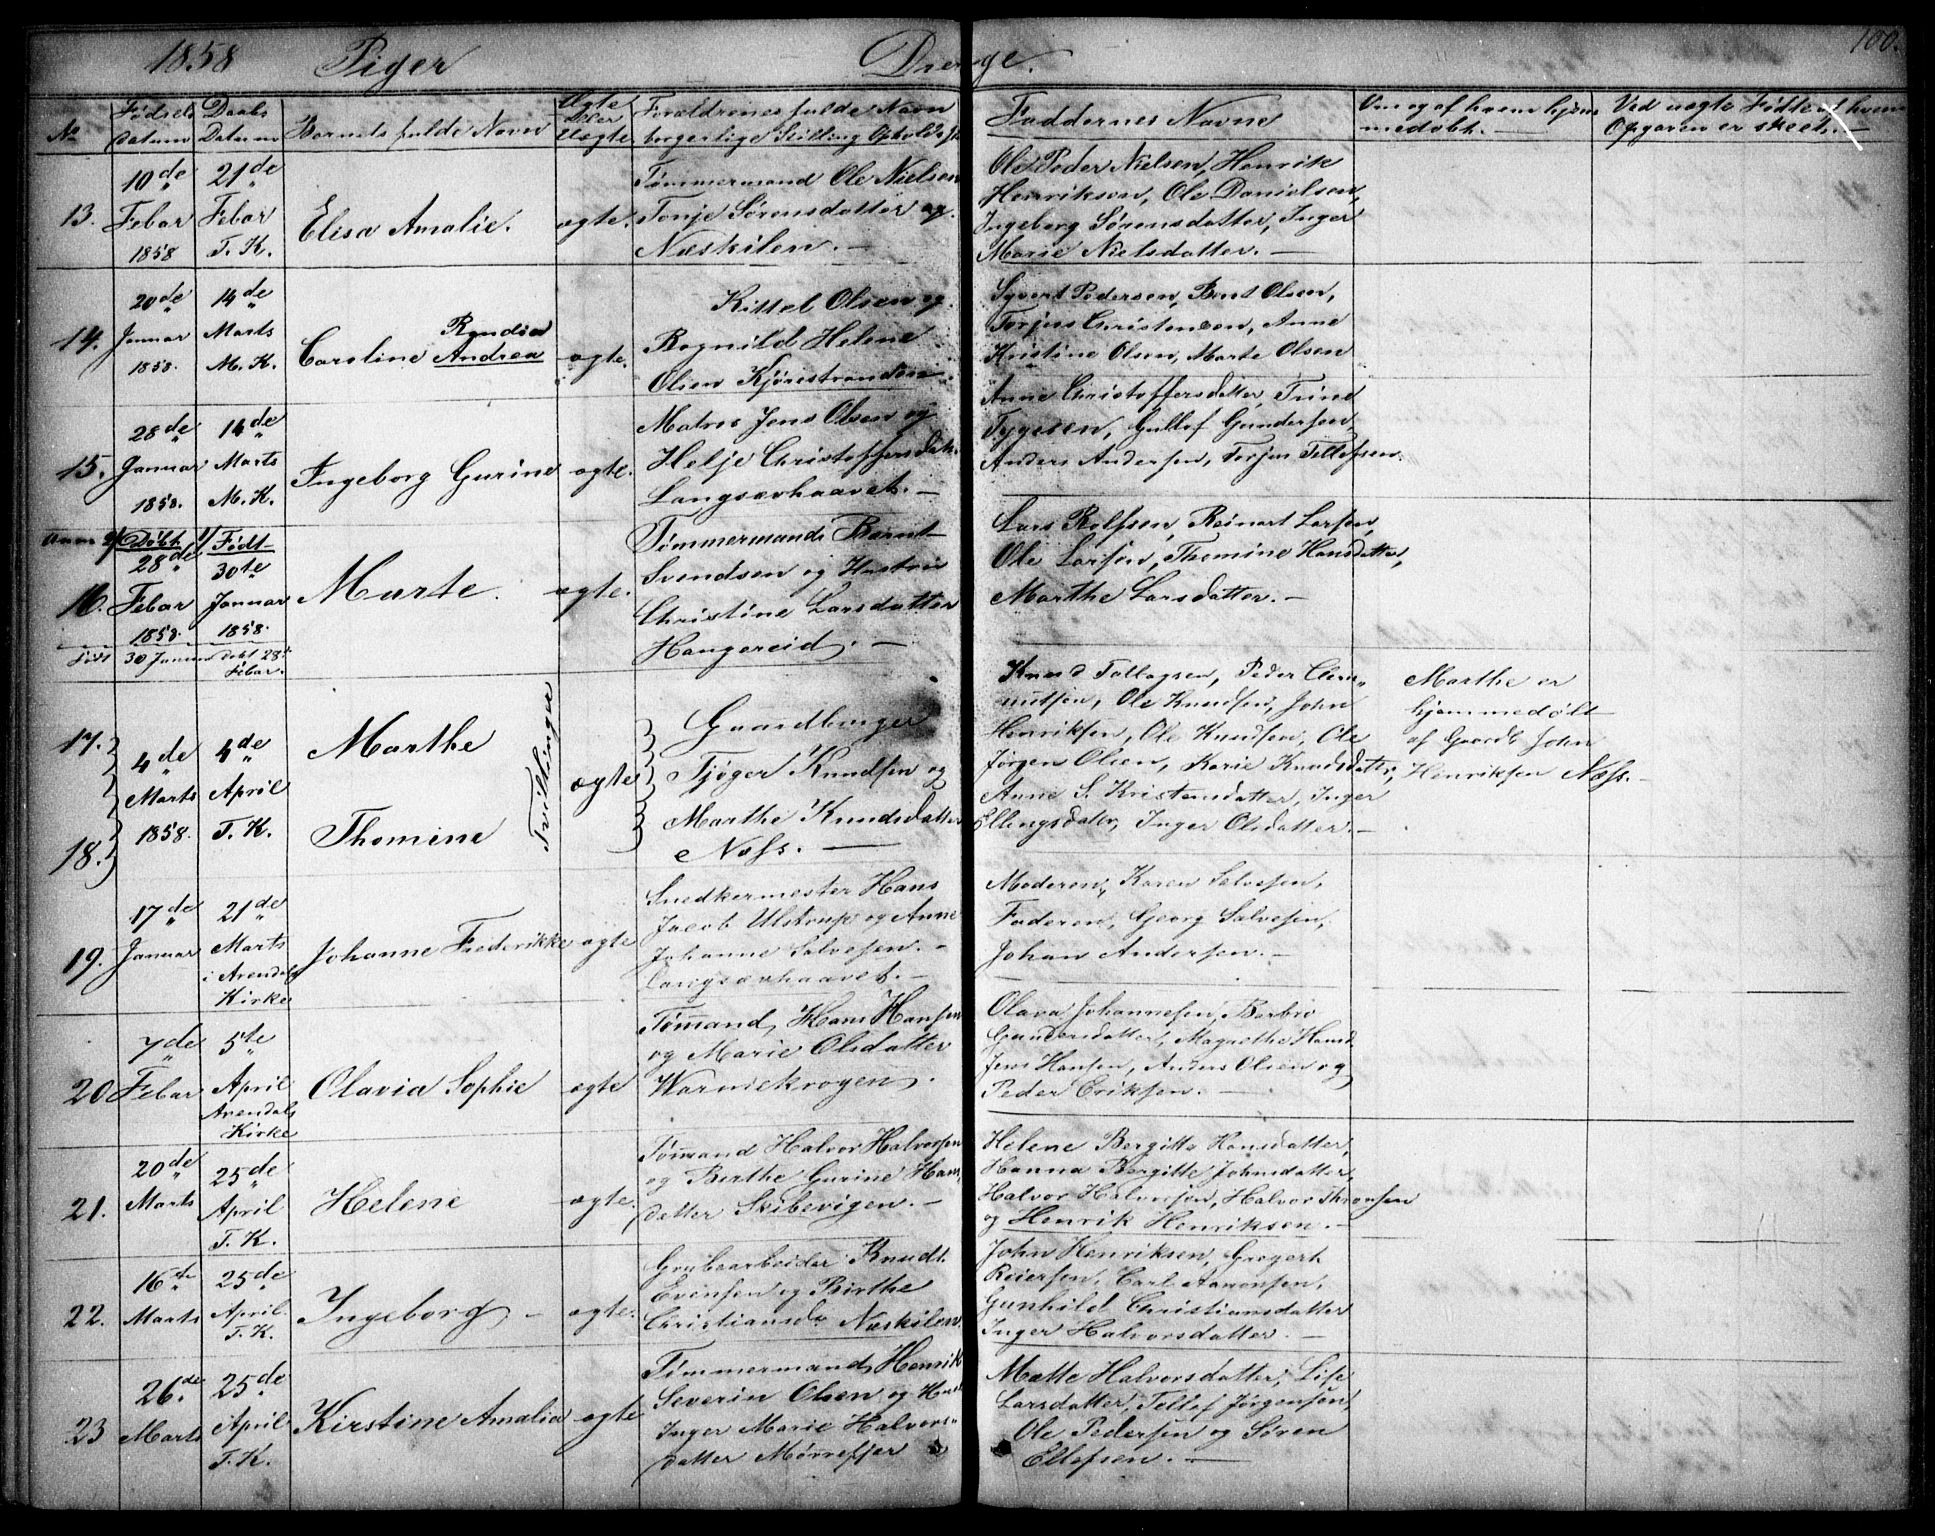 1858 Piger Drenge. 100.
No Fødsels Datum Daabs Datum Barnets fulde Navn Ægte eller Uægte Forældrenes fulde Navn borgerlige Stilling Opholdsst. Faddernes Navne Om og af hvem hjemmedøbt. Ved uægte Fødte af hvem Opgaven er skeet.
13. 10de Febar 1858 21de Febar T. K. Elisa Amalie. ægte.
Tømmermand Ole Nielsen
Tonje Sørensdatter og.
Næskilen. —
Ole Peder Nielsen, Henrik
Henriksen, Ole Danielsen,
Ingeborg Sørensdatter, Inger
Marie Nielsdatter. —
14. 20de Januar 1858. 14de Marts M. K. Caroline Andrea ægte.
Kittel Olsen og
Rognild Helene
Olsen Kjørestranden
Syvert Pedersen, Bent Olsen,
Torjus Christensen, Anne
Kristine Olsen, Marte Olsen
15. 28de Januar 1858. 14de Marts M. K. Ingeborg Gurine ægte.
Matros Jens Olsen og
Helje Christoffersdatt.
Langsævhaavet. —
Anne Christoffersdatter, Trine
Tygesen, Gullof Gundersen,
Anders Andersen, Torjus Tellefsen.
Døbt Født
16. 28de Febar 1858. 30te Januar 1858. Marte. ægte.
Født 30 Januar Døbt 28de Febar.
Tømmermands Bernt
Svendsen og Hustru
Christine Larsdatter
Hangereid. —
Lars Rolfsen, Reinart Larsen,
Ole Larsen, Themine Hansdatter,
Marthe Larsdatter. —
17. 18. 4de Marts 1858. 4de April T. K. Marthe Thomine Tvillinger ægte
Gaardbruger
Tjøger Knudsen og
Marthe Knudsdatter
Næss. —
Knud Tallagsen, Peder Clem-
mitsen, Ole Knudsen, John
Henriksen, Ole Knudsen, Ole
Jørgen Olsen, Karie Knudsdatter,
Anne S. Kristensdatter, Inger
Ellingsdatter, Inger Olsdatter. —
Marthe er
hjemmedøbt
af Gaardb John
Henriksen Næss. —
19. 17de Januar 21de Marts i Arendals Kirke Johanne Frederikke ægte
Snedkermester Hans
Jacob Ulstrup og Anne
Johanne Salvesen. —
Langsævhaavet. —
Moderen, Karen Salvesen,
Faderen, Georg Salvesen,
Johan Andersen. —
20 7de Febar 5te April Arendals Kirke Olavia Sophie ægte
Tømmand, Hans Hansen
og Marie Olsdatter
Warviekrogen.
Olava Johannesen, Berbro
Gundersdatter, Magnethe Hansd
Jens Hansen, Anders Olsen og
Peder Eriksen. —
21. 20de Marts 25de April T. K. Helene ægte.
Tømmand Halvor Halvorsen
og Berthe Gurine Hans
datter Skibevigen. —
Helene Bergitte Hansdatter,
Hanna Bergitte Johnsdatter,
Halvor Halvorsen, Halvor Thronsen
og Henrik Henriksen. —
22. 16te Marts 25de April T. K. Ingeborg — ægte.
Grubearbeider Knudt
Evensen og Birthe
Christiansdr Næskilen.
John Henriksen, Gregert
Reiersen, Carl Aanonsen,
Gunhild Christiansdatter
Inger Halvorsdatter. —
23 26de Marts 25de April T. K. Kirstine Amalia ægte
Tømmermand, Henrik
Severin Olsen og Hust
Inger Marie Halvors-
datter Mørrefjær
Mætte Halvorsdatter, Lise
Larsdatter, Tellef Jørgensen,
Ole Pedersen og Søren
Ellefsen. —